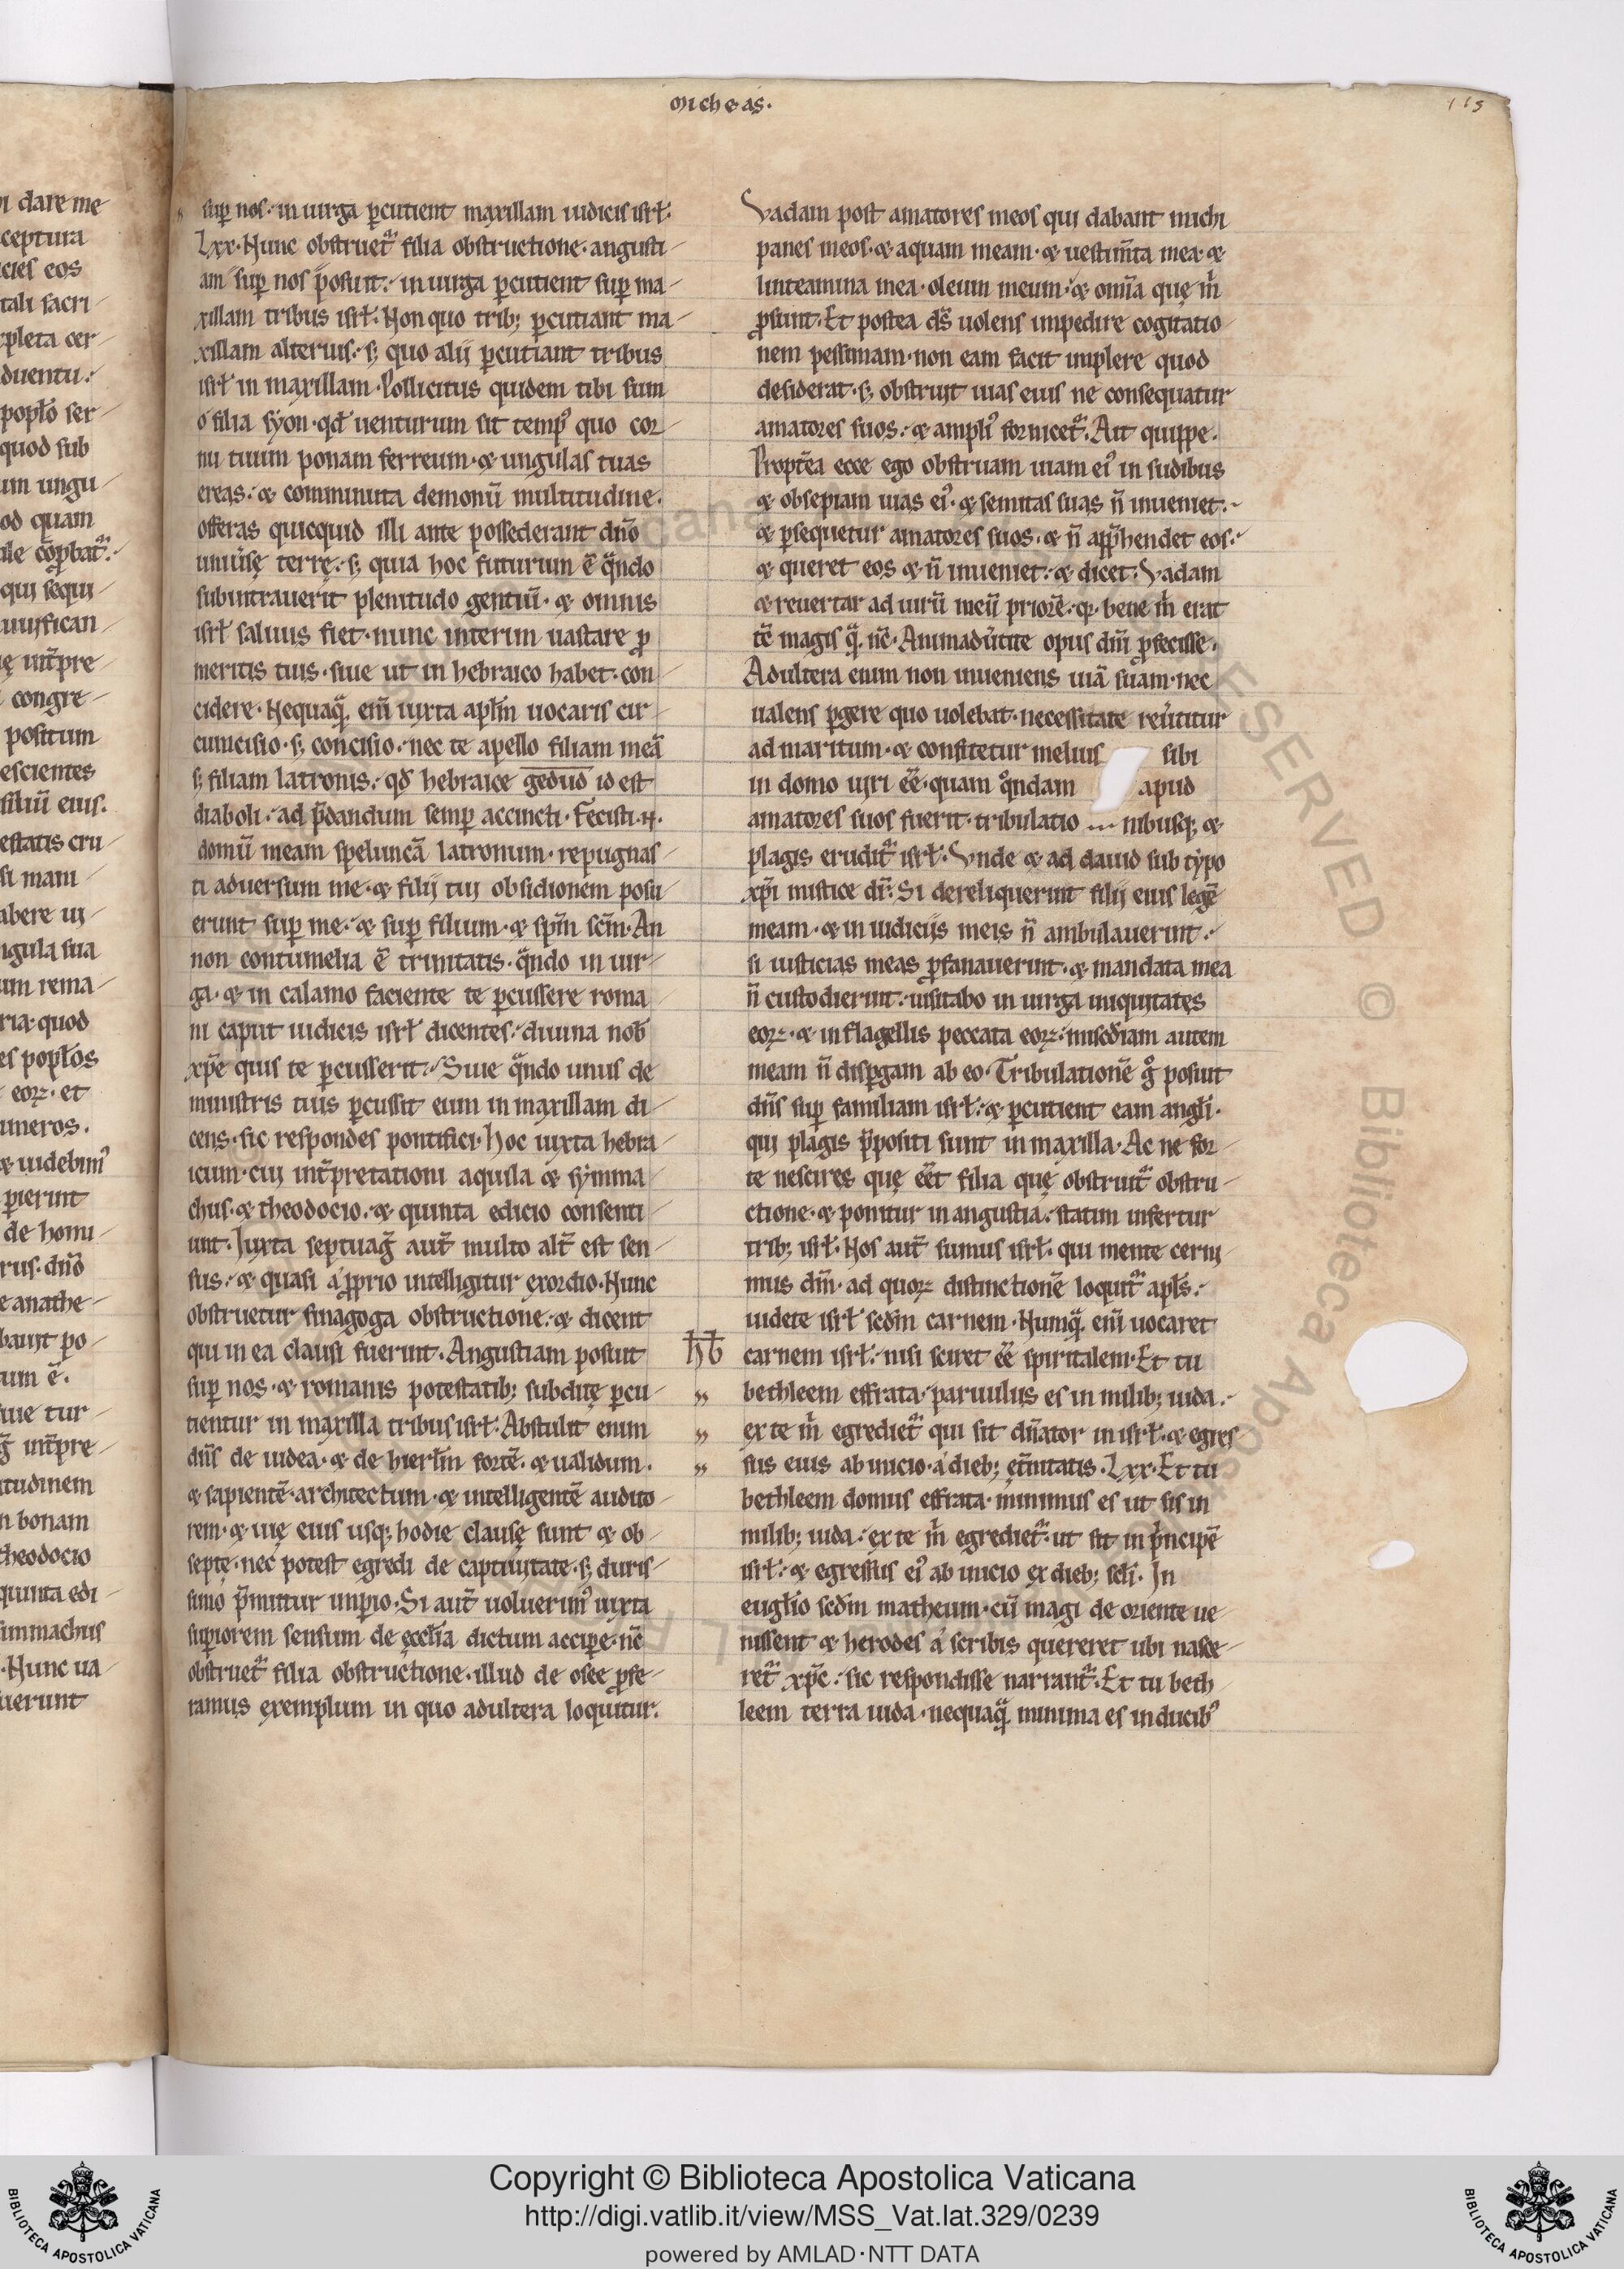 micheas.
115
sup̱ nos. in uirga p̱cutient maxillam iudicis isrł.
Lxx. Nunc obstruet᷑ filia obstructione. angusti-
am sup̱ nos posuit. in uirga p̱cutient sup̱ ma-
xillam tribus isrł. Non quo trib; p̱cutiant ma-
xillam alterius. s; quo alij p̱cutiant tribus
isrł in maxillam. Pollicitus quidem tibi sum
o filia syon. qđ uenturum sit temp᷒ quo cor-
nu tuum ponam ferreum. & ungulas tuas
ereas. & comminuta demonū multitudine.
offeras quicquid illi ante possederant dn̄o
uniu̾sę terrę. s; quia hoc futurum ē qn̄do
subintrauerit plenitudo gentiū. & omnis
isrł saluus fiet. nunc interim uastare ꝓ
meritis tuis. siue ut in hebraico habet. con-
cidere. Nequaq̄. eni᷑ iuxta apłm uocaris cir-
cumcisio. s; concisio. nec te apello filiam meā
s; filiam latronis. qđ hebraice gedud id est
diaboli. ad p̄dandum semp̱ accincti. Fecisti .n.
domū meam speluncā latronum. repugnas-
ti aduersum me. & filij tui obsidionem posu-
erunt sup̱ me. & sup̱ filium. & sp̄m sc̄m. An
non contumelia ē trinitatis. qn̄do in uir-
ga. & in calamo faciente te p̱cussere roma-
ni caput iudicis isrł dicentes. diuina nob̄
xp̄e quis te p̱cusserit. Siue qn̄do unus de
ministris tuis p̱cussit eum in maxillam di-
cens. sic respondes pontifici. Hoc iuxta hebra-
icum. cui int̾pretationi aquila & symma-
chus. & theodocio. & quinta edicio consenti-
unt. Iuxta septuaḡ aut̄ multo alt̄ est sen-
sus. & quasi a ꝓprio intelligitur exordio. Nunc
obstruetur sinagoga obstructione. & dicent
qui in ea clausi fuerint. Angustiam posuit
sup̱ nos. & romanis potestatib; subditę p̱cu-
tientur in maxilla tribus isrł. Abstulit enim
dn̄s de iudea. & de hierłm fortē. & ualidum.
& sapientē. architectum. & intelligentē audito-
rem. & uię eius usq; hodie clausę sunt & ob-
septę. nec potest egredi de captiuitate. s; duris-
simo p̄mitur imp̱io. Si aut̄ uoluerim᷒ iuxta
sup̱iorem sensum de ęccłia dictum accip̱e. nc̄
obstruet᷑ filia obstructione. illud de osee ꝓfe-
ramus exemplum in quo adultera loquitur.
Vadam post amatores meos qui dabant michi
panes meos. & aquam meam. & uestim̄ta mea. &
linteamina mea. oleum meum. & omīa quę m̄
ꝓsunt. Et postea ds̄ uolens impedire cogitatio-
nem pessimam. non eam facit implere quod
desiderat. s; obstruit uias eius ne consequatur
amatores suos. & ampli᷒ fornicet᷑. Ait quippe.
Propt̄ea ecce ego obstruam uiam ei᷒ in sudibus
& obsepiam uias ei᷒. & semitas suas n̄ inueniet.
& p̱sequetur amatores suos. & n̄ app̄hendet eos.
& queret eos & n̄ inueniet. & dicet. Vadam
& reuertar ad uirū meū priorē. q̄. bene m̄ erat
tē magis q̄. nc̄. Animadu̾tite opus dn̄i ꝓfecisse.
Adultera enim non inueniens uiā suam. nec
ualens p̱gere quo uolebat. necessitate reu̾titur
ad maritum. & confitetur melius sibi
in domo uiri eē̄. quam qͦndam apud
amatores suos fuerit. tribulatio ... nibusq; &
plagis erudit᷑ isrł. Vnde & ad dauid sub typo
xp̄i mistice dr̄. Si dereliquerint filij eius legē
meam. & in iudiciis meis n̄ ambulauerint.
si iusticias meas ꝓfanauerint. & mandata mea
n̄ custodierint. uisitabo in uirga iniquitates
eoꝝ. & in flagellis peccata eoꝝ. misc̄diam autem
meam n̄ disp̱gam ab eo. Tribulationē gͦ posuit
dn̄s sup̱ familiam isrł. & p̱cutient eam angłi.
qui plagis p̄positi sunt in maxilla. Ac ne for-
te nescires quę eēt filia quę obstruit᷑ obstru-
ctione. & ponitur in angustia. statim infertur
trib; isrł. Nos aut̄ sumus isrł. qui mente cerni-
mus dm̄. ad quoꝝ distinctionē loquit᷑ apłs.
uidete isrł scđm carnem. Nunq̄. eni᷑ uocaret
hƀ carnem isrł. nisi sciret eē̄ spiritalem. Et tu
„ bethleem effrata. paruulus es in milib; iuda.
„ ex te m̄ egrediet᷑ qui sit dn̄ator in isrł. & egres-
„ sus eius ab inicio. a dieb; et̄nitatis. Lxx. Et tu
bethleem domus effrata. minimus es ut sis in
milib; iuda. ex te m̄ egrediet᷑. ut sit in p̄ncipē
isrł. & egressus ei᷒ ab inicio ex dieb; scłi. In
eugłio scđm matheum. cū magi de oriente ue-
nissent & herodes a scribis quereret ubi nasce-
ret᷑ xp̄c. sic respondisse narrant᷑. Et tu beth-
leem terra iuda. nequaq̄ minima es in ducib᷒
Copyright © Biblioteca Apostolica Vaticana
http://digi.vatlib.it/view/MSS_Vat.lat.329/0239
powered by AMLAD·NTT DATA
BIBLIOTECA APOSTOLICA VATICANA
BIBLIOTECA APOSTOLICA VATICANA